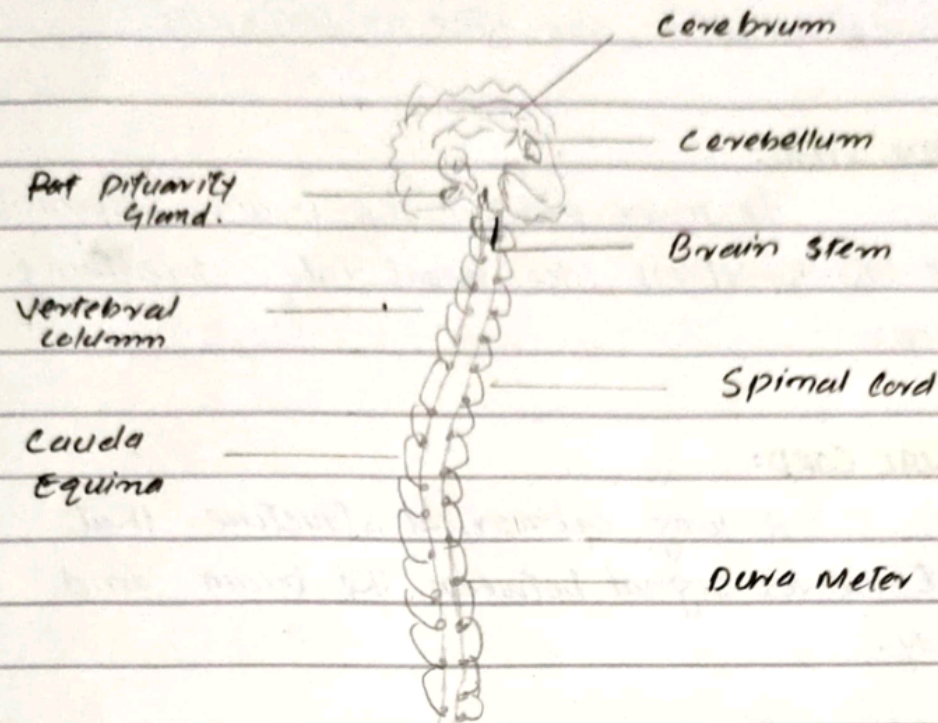 Cerebrum
Cerebellum
Pituarity
Gland.
Brain Stem
Vertebral
Column
Spinal Cord
Cauda
Equina
Dura Meter